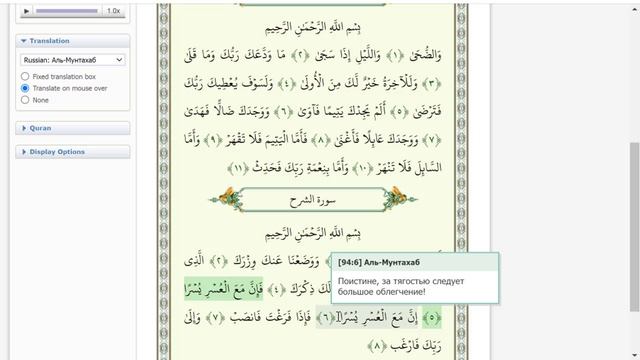 1.0x
Translation
Russian: Аль-Мунтахаб
Fixed translation box
Translate on mouse over
None
Quran
Display Options
بِسْمِ اللَّهِ الرَّحْمَٰنِ الرَّحِيمِ
وَالضُّحَىٰ ﴿١﴾ وَاللَّيْلِ إِذَا سَجَىٰ ﴿٢﴾ مَا وَدَّعَكَ رَبُّكَ وَمَا قَلَىٰ
﴿٣﴾ وَلَلْآخِرَةُ خَيْرٌ لَّكَ مِنَ الْأُولَىٰ ﴿٤﴾ وَلَسَوْفَ يُعْطِيكَ رَبُّكَ
فَتَرْضَىٰ ﴿٥﴾ أَلَمْ يَجِدْكَ يَتِيمًا فَآوَىٰ ﴿٦﴾ وَوَجَدَكَ ضَالًّا فَهَدَىٰ
﴿٧﴾ وَوَجَدَكَ عَائِلًا فَأَغْنَىٰ ﴿٨﴾ فَأَمَّا الْيَتِيمَ فَلَا تَقْهَرْ ﴿٩﴾ وَأَمَّا
السَّائِلَ فَلَا تَنْهَرْ ﴿١٠﴾ وَأَمَّا بِنِعْمَةِ رَبِّكَ فَحَدِّثْ ﴿١١﴾
سورة الشرح
بِسْمِ اللَّهِ الرَّحْمَٰنِ الرَّحِيمِ
وَوَضَعْنَا عَنكَ وِزْرَكَ ﴿٢﴾ الَّذِي
لَكَ ذِكْرَكَ ﴿٤﴾ فَإِنَّ مَعَ الْعُسْرِ يُسْرًا
﴿٥﴾ إِنَّ مَعَ الْعُسْرِ يُسْرًا ﴿٦﴾ فَإِذَا فَرَغْتَ فَانصَبْ ﴿٧﴾ وَإِلَىٰ
رَبِّكَ فَارْغَب ﴿٨﴾
[94:6] Аль-Мунтахаб
Поистине, за тягостью следует
большое облегчение!